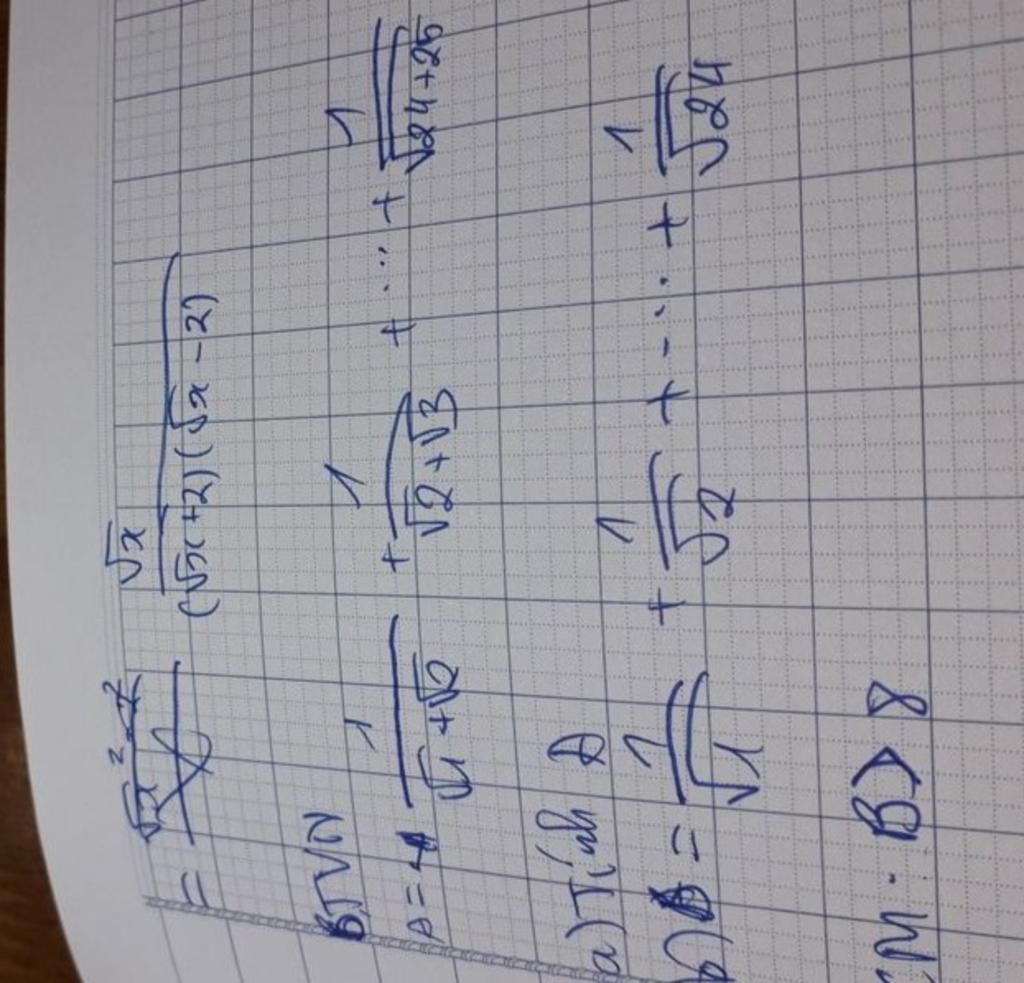 = √x / (√x + 2)(√x - 2)
BTVN
A = 1/(√1 + √2) + 1/(√2 + √3) + ... + 1/√(24 + 25)
a) Tính A
b) B = 1/√1 + 1/√2 + ... + 1/√24
CM. B > 8